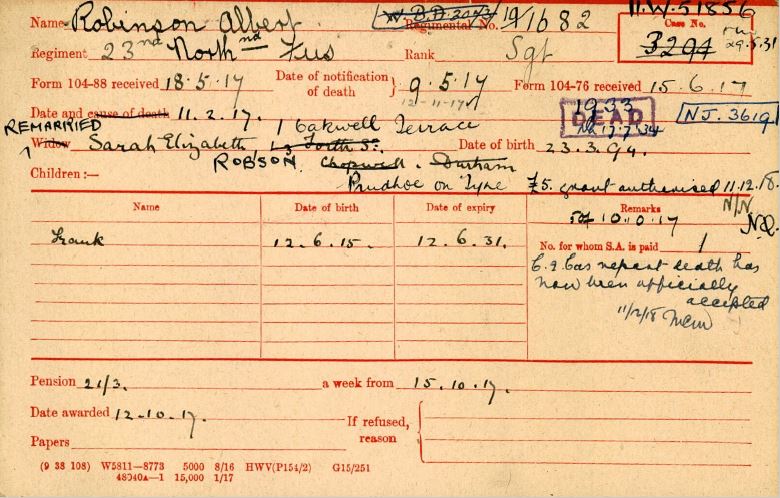 11.W.51856
Name Robinson Albert Regimental No. 19/1682 Case No. 3294 29.5.31
Regiment 23rd North'nd Fus Rank Sgt
Form 104-88 received 18.5.17 Date of notification of death } 9.5.17 Form 104-76 received 15.6.17
12-11-17
Date and cause of death 11.2.17. 1933 DEAD 17.7.34 NJ.3619
REMARRIED 1 Oakwell Terrace
Widow Sarah Elizabeth, Forth St. Date of birth 23.3.94.
ROBSON Chopwell. Durham
Children:— Prudhoe on Tyne £5. grant authorised 11.12.18.
N/N
Name Date of birth Date of expiry Remarks
10.0.17 N.Q.
Frank 12.6.15. 12.6.31. No. for whom S.A. is paid 1
Cas report death has
now been officially
accepted
11/12/18
Pension 21/3. a week from 15.10.17.
Date awarded 12-10-17. If refused, reason
Papers
(9 38 108) W5811—8773 5000 8/16 HWV(P154/2) G15/251
48040A—1 15,000 1/17